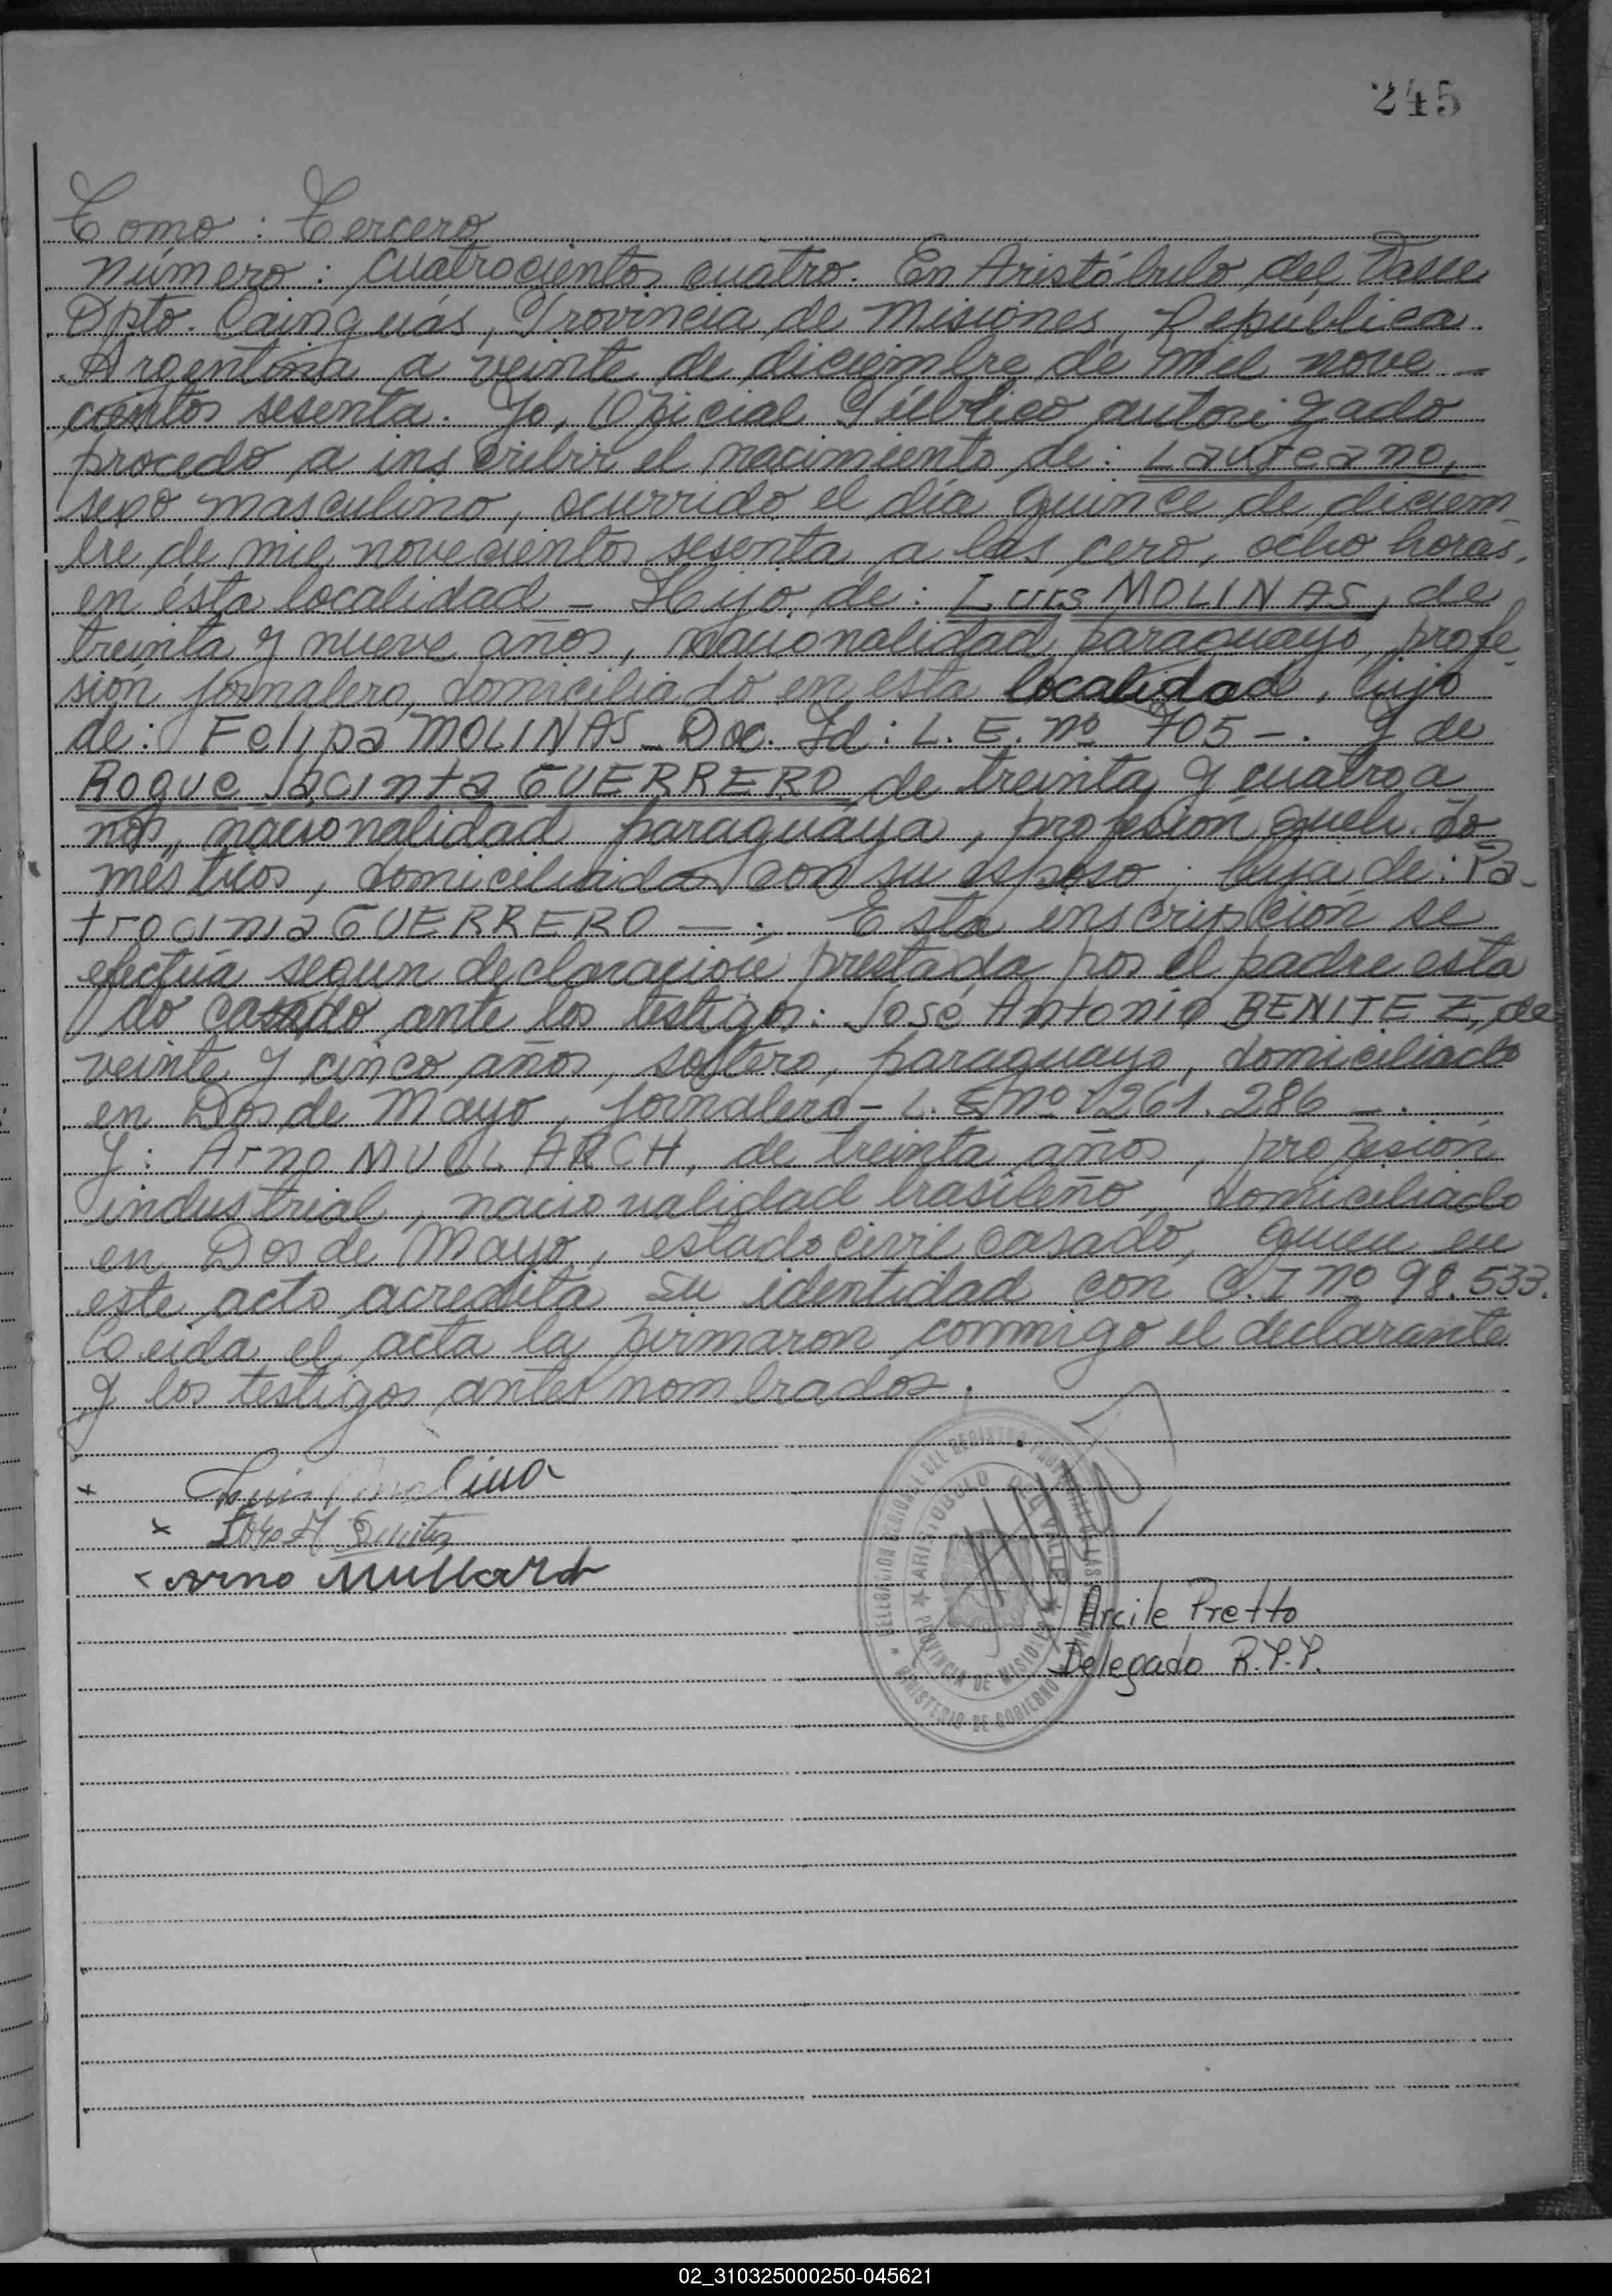 245
Tomo: Tercero
Número: Cuatrocientos cuatro. En Aristóbulo del Valle
Dpto. Cainguás, Provincia de Misiones, República
Argentina a veinte de diciembre de mil nove_
cientos sesenta. Yo, Oficial Público autorizado
procedo a inscribir el nacimiento de: Laureano,
sexo masculino, ocurrido el día quince de diciem_
bre de mil novecientos sesenta a las cero, ocho horas,
en ésta localidad - Hijo de: Luis MOLINAS, de
treinta y nueve años, nacionalidad paraguayo, profe_
sión jornalero, domiciliado en esta localidad, hijo
de: Felipa MOLINAS - Doc. Id: L. E. nº 705 -. Y de
Roque Jacinta GUERRERO de treinta y cuatro a
ños, nacionalidad paraguaya, profesión queh. do_
mésticos, domiciliada con su esposo, hija de: Pa-
trocinia GUERRERO —. Esta inscripción se
efectúa segun declaración prestada por el padre esta
do casado ante los testigos: José Antonio BENITEZ, de
veinte y cinco años, soltero, paraguayo, domiciliado
en Dos de Mayo, jornalero - L. E nº 1261.286 -.
Y: Arno MULLARCH, de treinta años, profesión
industrial, nacionalidad brasileño, domiciliado
en Dos de Mayo, estado civil casado, quien en
este acto acredita su identidad con C.I nº 98.533.
Leida el acta la firmaron conmigo el declarante
y los testigos antes nombrados.
x Luis Molina
x José A Benitez
x Arno Mullarch
DELEGACION REGIONAL DEL REGISTRO
ARISTOBULO DEL VALLE
PROVINCIA DE MISIONES
MINISTERIO DE GOBIERNO
Arcile Pretto
Delegado R.P.P.
02_310325000250-045621